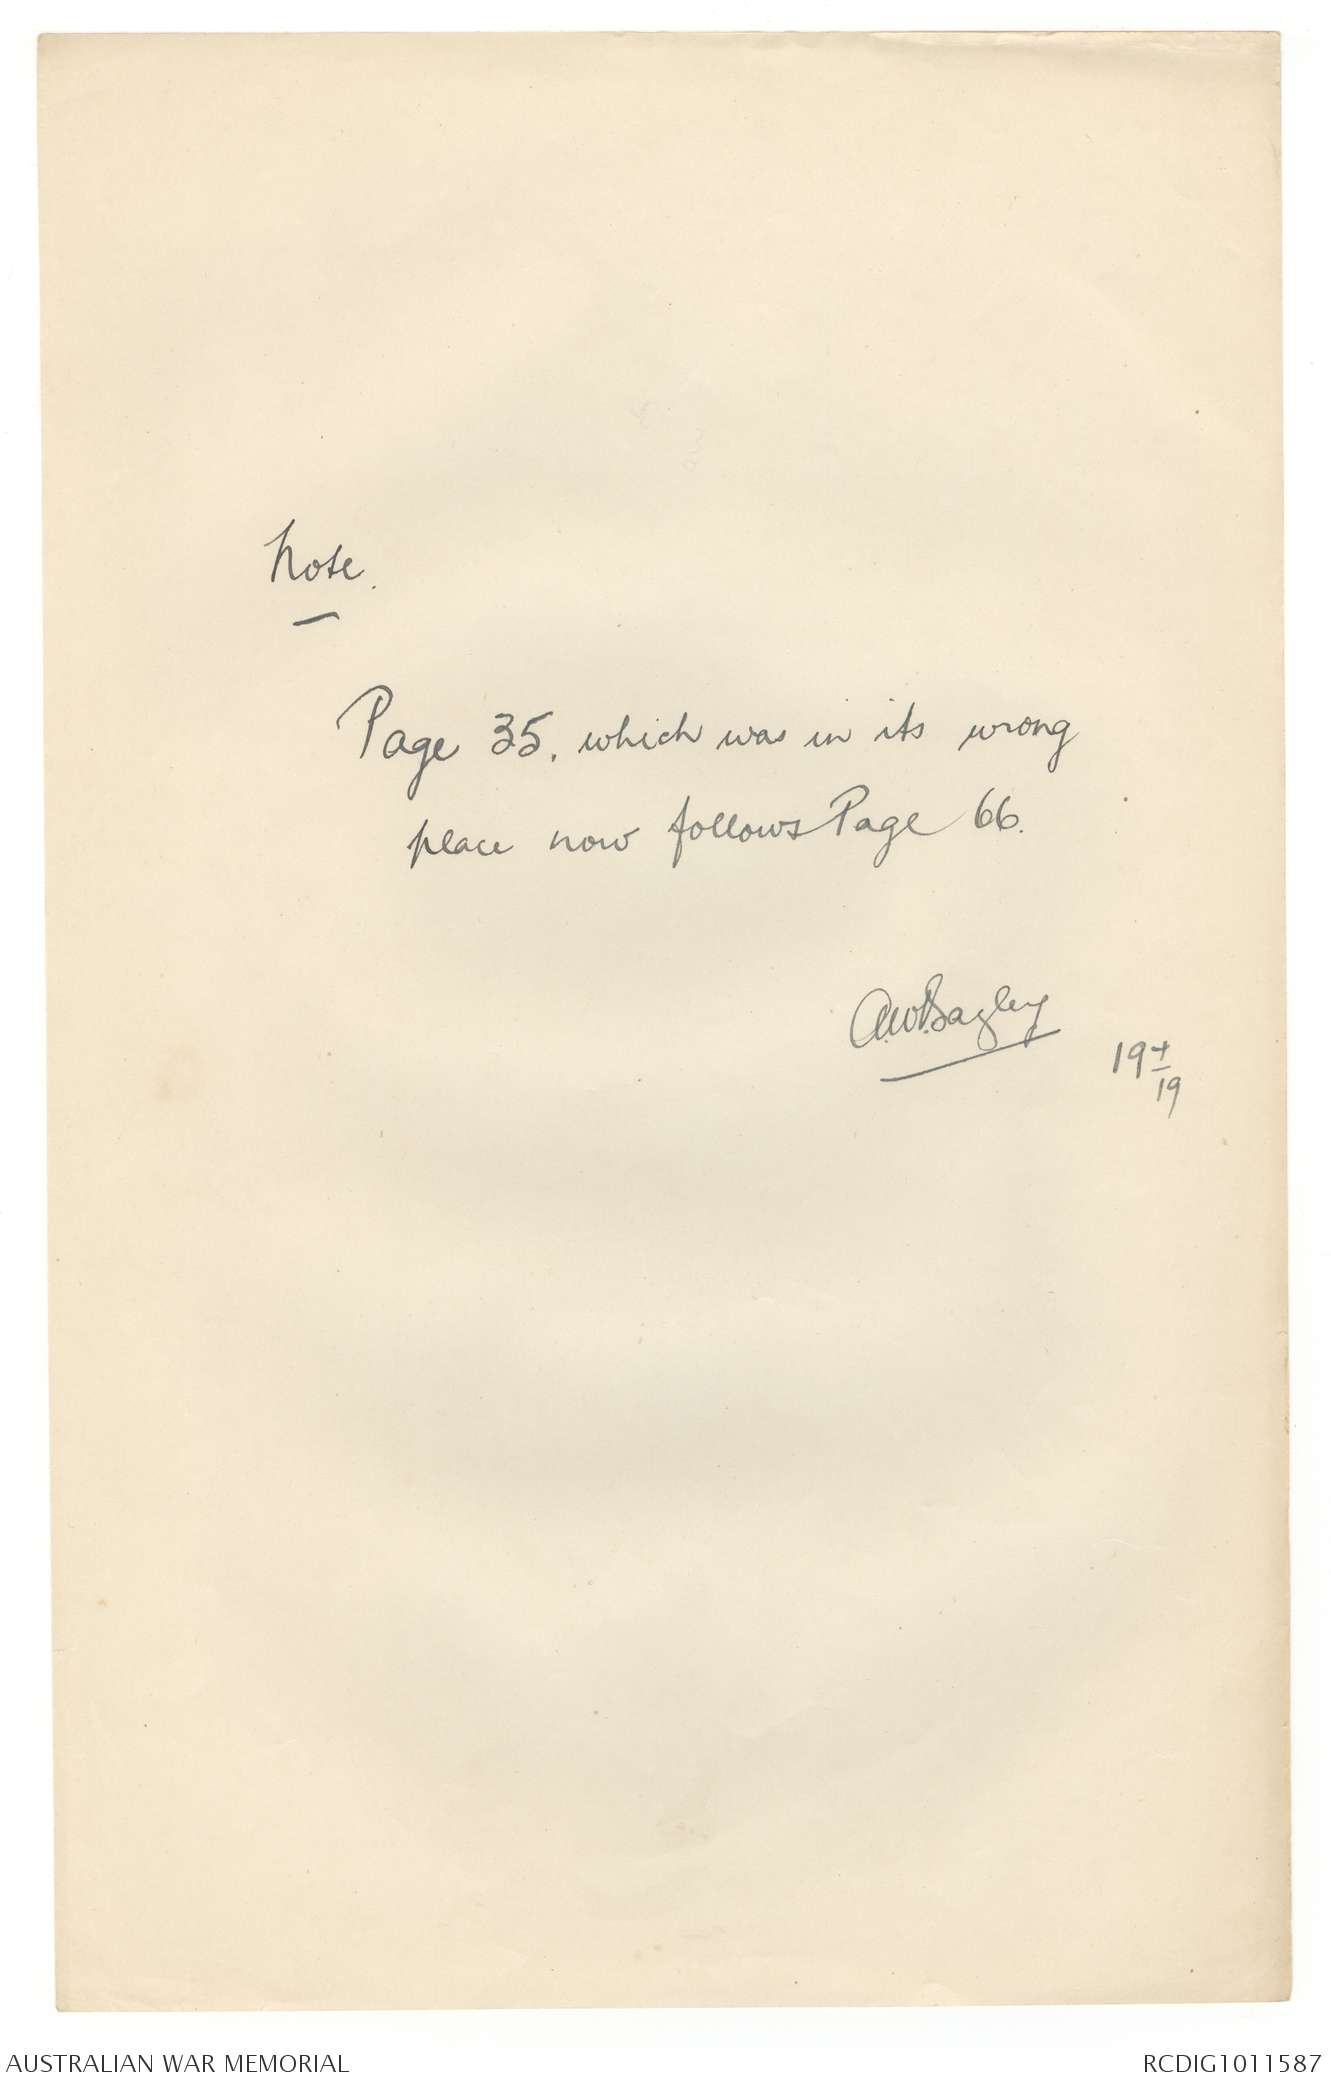 Note.
Page 35, which was in its wrong
place now follows Page 66.
A.W.Bazley
19 +/19
AUSTRALIAN WAR MEMORIAL
RCDIG1011587